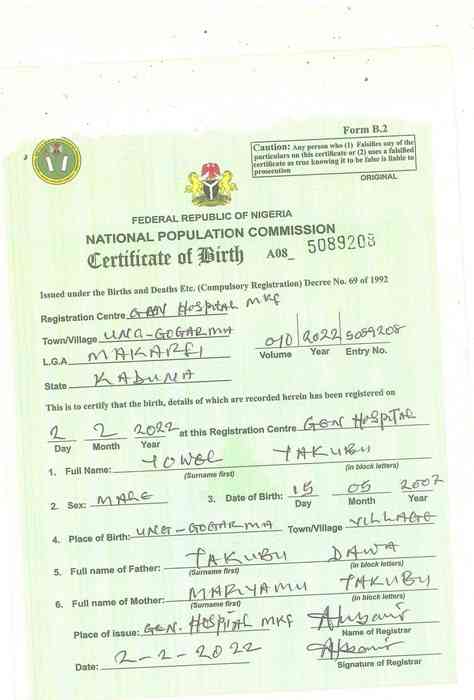 Form B.2
Caution: Any person who (1) Falsifies any of the
particulars on this certificate or (2) uses a falsified
certificate as true knowing it to be false is liable to
prosecution
ORIGINAL
FEDERAL REPUBLIC OF NIGERIA
NATIONAL POPULATION COMMISSION
Certificate of Birth A08_ 5089208
Issued under the Births and Deaths Etc. (Compulsory Registration) Decree No. 69 of 1992
Registration Centre GEN HOSPITAL MKF
Town/Village UNG-GOGARMA
L.G.A MAKARFI
010 2022 5089208
Volume Year Entry No.
State KADUNA
This is to certify that the birth, details of which are recorded herein has been registered on
2 2 2022 at this Registration Centre GEN HOSPITAL
Day Month Year
1. Full Name: YAKUBU
(Surname first) (in block letters)
2. Sex: MALE 3. Date of Birth: 15 05 2007
Day Month Year
4. Place of Birth: UNG-GOGARMA Town/Village VILLAGE
5. Full name of Father: YAKUBU DAWA
(Surname first) (in block letters)
6. Full name of Mother: MARYAMU YAKUBU
(Surname first) (in block letters)
Place of issue: GEN. HOSPITAL MKF
Name of Registrar
Date: 2-2-2022
Signature of Registrar